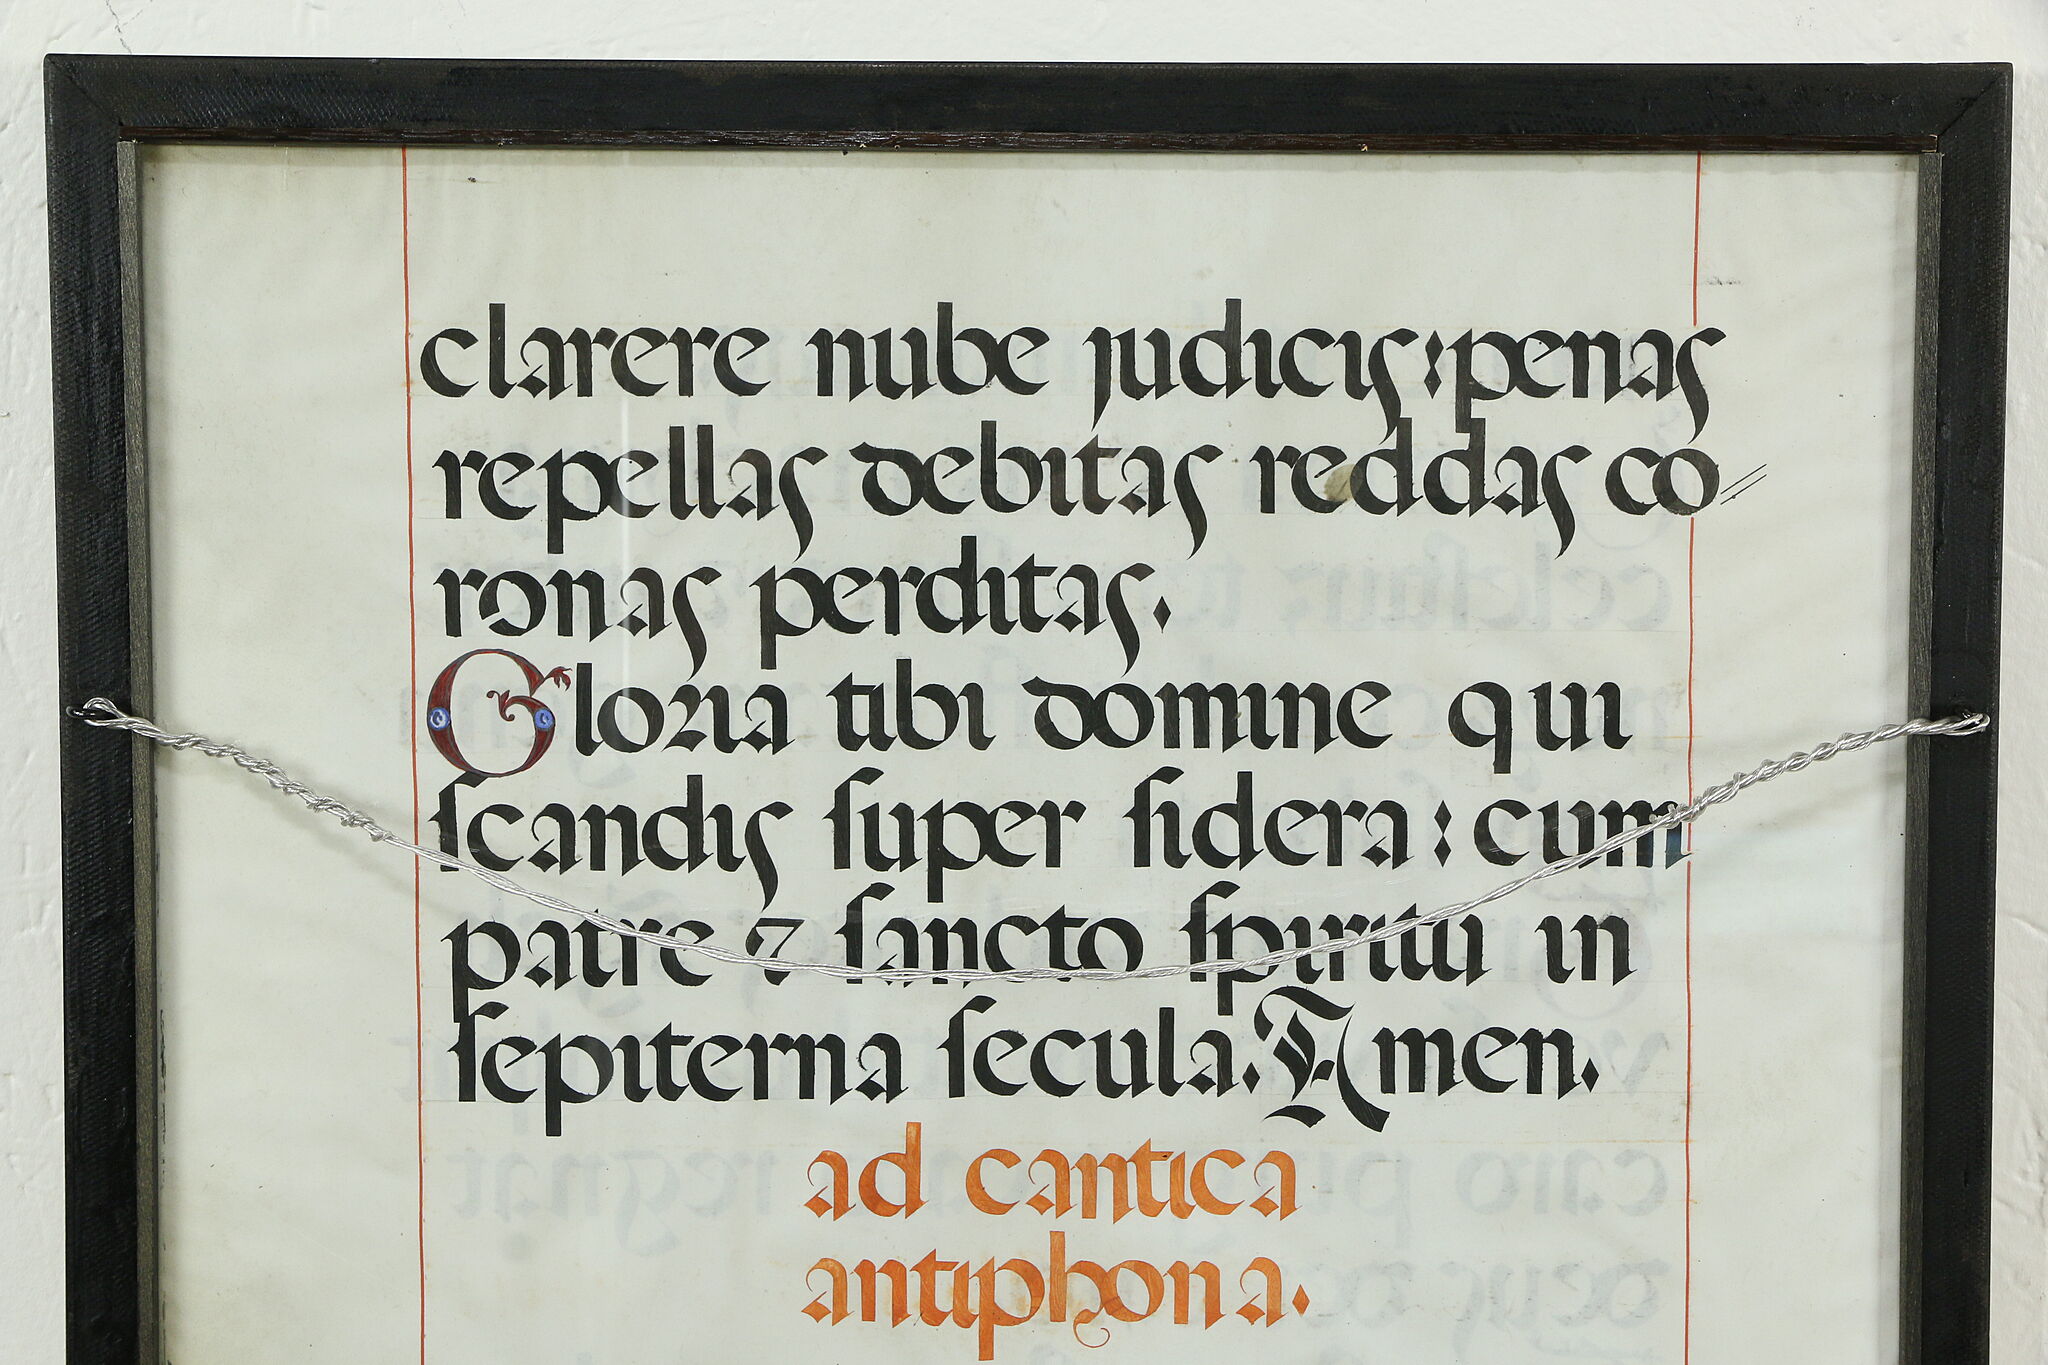 clarere nube judicis : penas
repellas debitas reddas co//
ronas perditas.
Gloria tibi domine qui
ſcandis ſuper ſidera : cum
patre ⁊ ſancto ſpiritu in
ſepiterna ſecula. Amen.
ad cantica
antiphona.